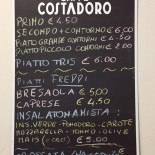 COSTADORO
PRIMO € 4.50
SECONDO + CONTORNO € 6.00
PIATTO GRANDE CONTORNI € 5.00
PIATTO PICCOLO CONTORNI €
PIATTO TRIS € 6.00
PIATTI FREDDI
BRESAOLA € 5.00
CAPRESE € 4.50
INSALATONAMISTA:
INS. VERDE - POMODORO - CAROTE
MOZZARELLA - TONNO - OLIVE
MAIS € 5.00